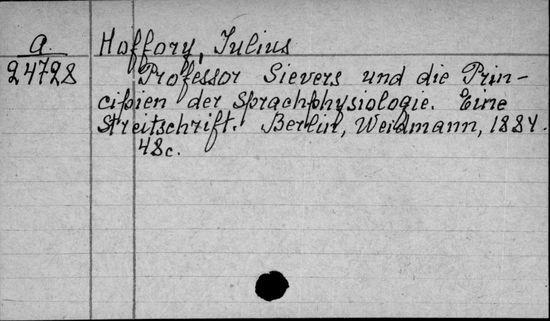 a.
24728
Hoffory, Julius
Professor Sievers und die Prin-
cipien der Sprachphysiologie. Eine
Streitschrift. Berlin, Weidmann, 1884.
48c.